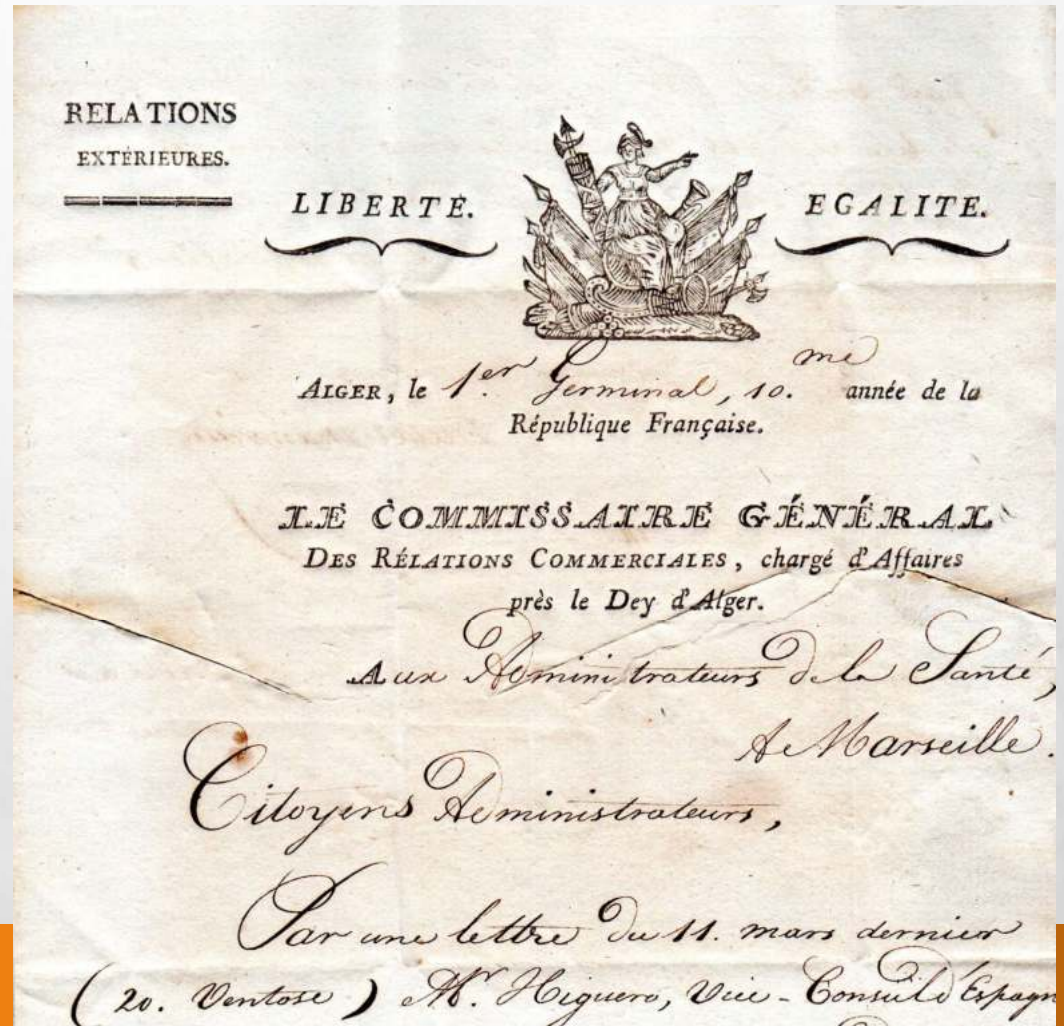 RELATIONS
EXTÉRIEURES.
LIBERTÉ. EGALITE.
ALGER, le 1.er Germinal, 10.me année de la
République Française.
LE COMMISSAIRE GÉNÉRAL
DES RÉLATIONS COMMERCIALES, chargé d'Affaires
près le Dey d'Alger.
Aux Administrateurs de la Santé,
A Marseille.
Citoyens Administrateurs,
Par une lettre du 11. mars dernier
(20. Ventose) Mr. Higuero, Vice-Consul d'Espagn